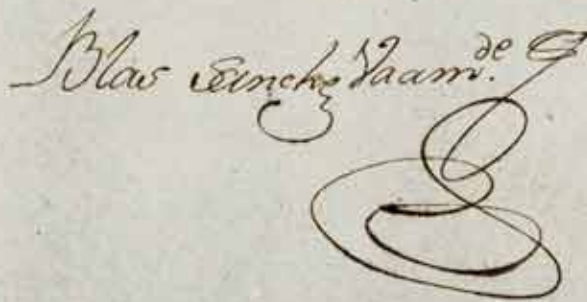 Blas Sanchz Vaam.de